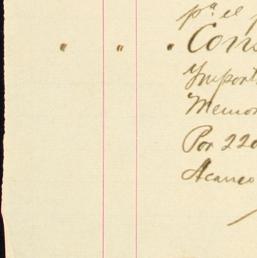 pª el
" " " Con
Import
Memor
Por 220
Acarreo